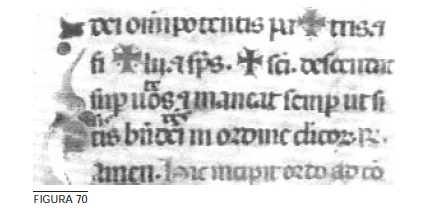 dei om̅ipotentis pa ✠ tris. ⁊
fi ✠ lii. ⁊ sp̅s. ✠ sc̅i. descendat
sup uos ⁊ maneat semp ut si
tis bn̅dc̅i in ordine clicoꝝ ꝶ.
amen. Hic incipit ordo ad co̅
FIGURA 70